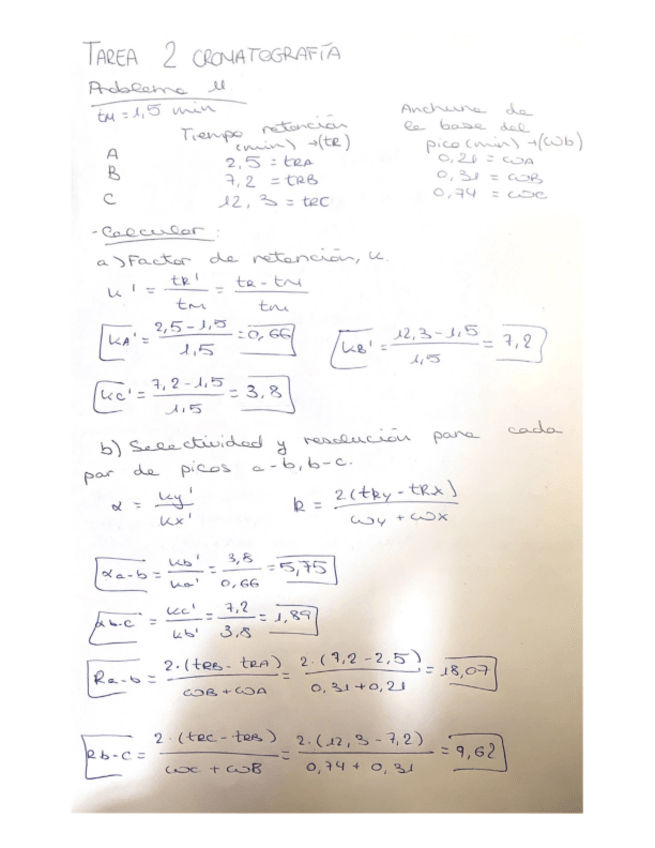 TAREA 2 CROMATOGRAFÍA
Problema 4
tM = 1,5 min
Tiempo retención (min) → (tR)
Anchura de la base del pico (min) → (ωb)
A 2,5 = tRA 0,21 = ωA
B 7,2 = tRB 0,31 = ωB
C 12,3 = tRC 0,74 = ωC
- Calcular:
a) Factor de retención, k.
k' = tR'/tM = tR - tM/tM
kA' = 2,5 - 1,5/1,5 = 0,66
kB' = 12,3 - 1,5/1,5 = 7,2
kC' = 7,2 - 1,5/1,5 = 3,8
b) Selectividad y resolución para cada
par de picos a-b, b-c.
α = ky'/kx' R = 2(tRy - tRx)/ωy + ωx
αa-b = kb'/ka' = 3,8/0,66 = 5,75
αb-c = kc'/kb' = 7,2/3,8 = 1,89
Ra-b = 2·(tRB - tRA)/ωB + ωA = 2·(7,2 - 2,5)/0,31 + 0,21 = 18,07
Rb-c = 2·(tRC - tRB)/ωC + ωB = 2·(12,3 - 7,2)/0,74 + 0,31 = 9,62